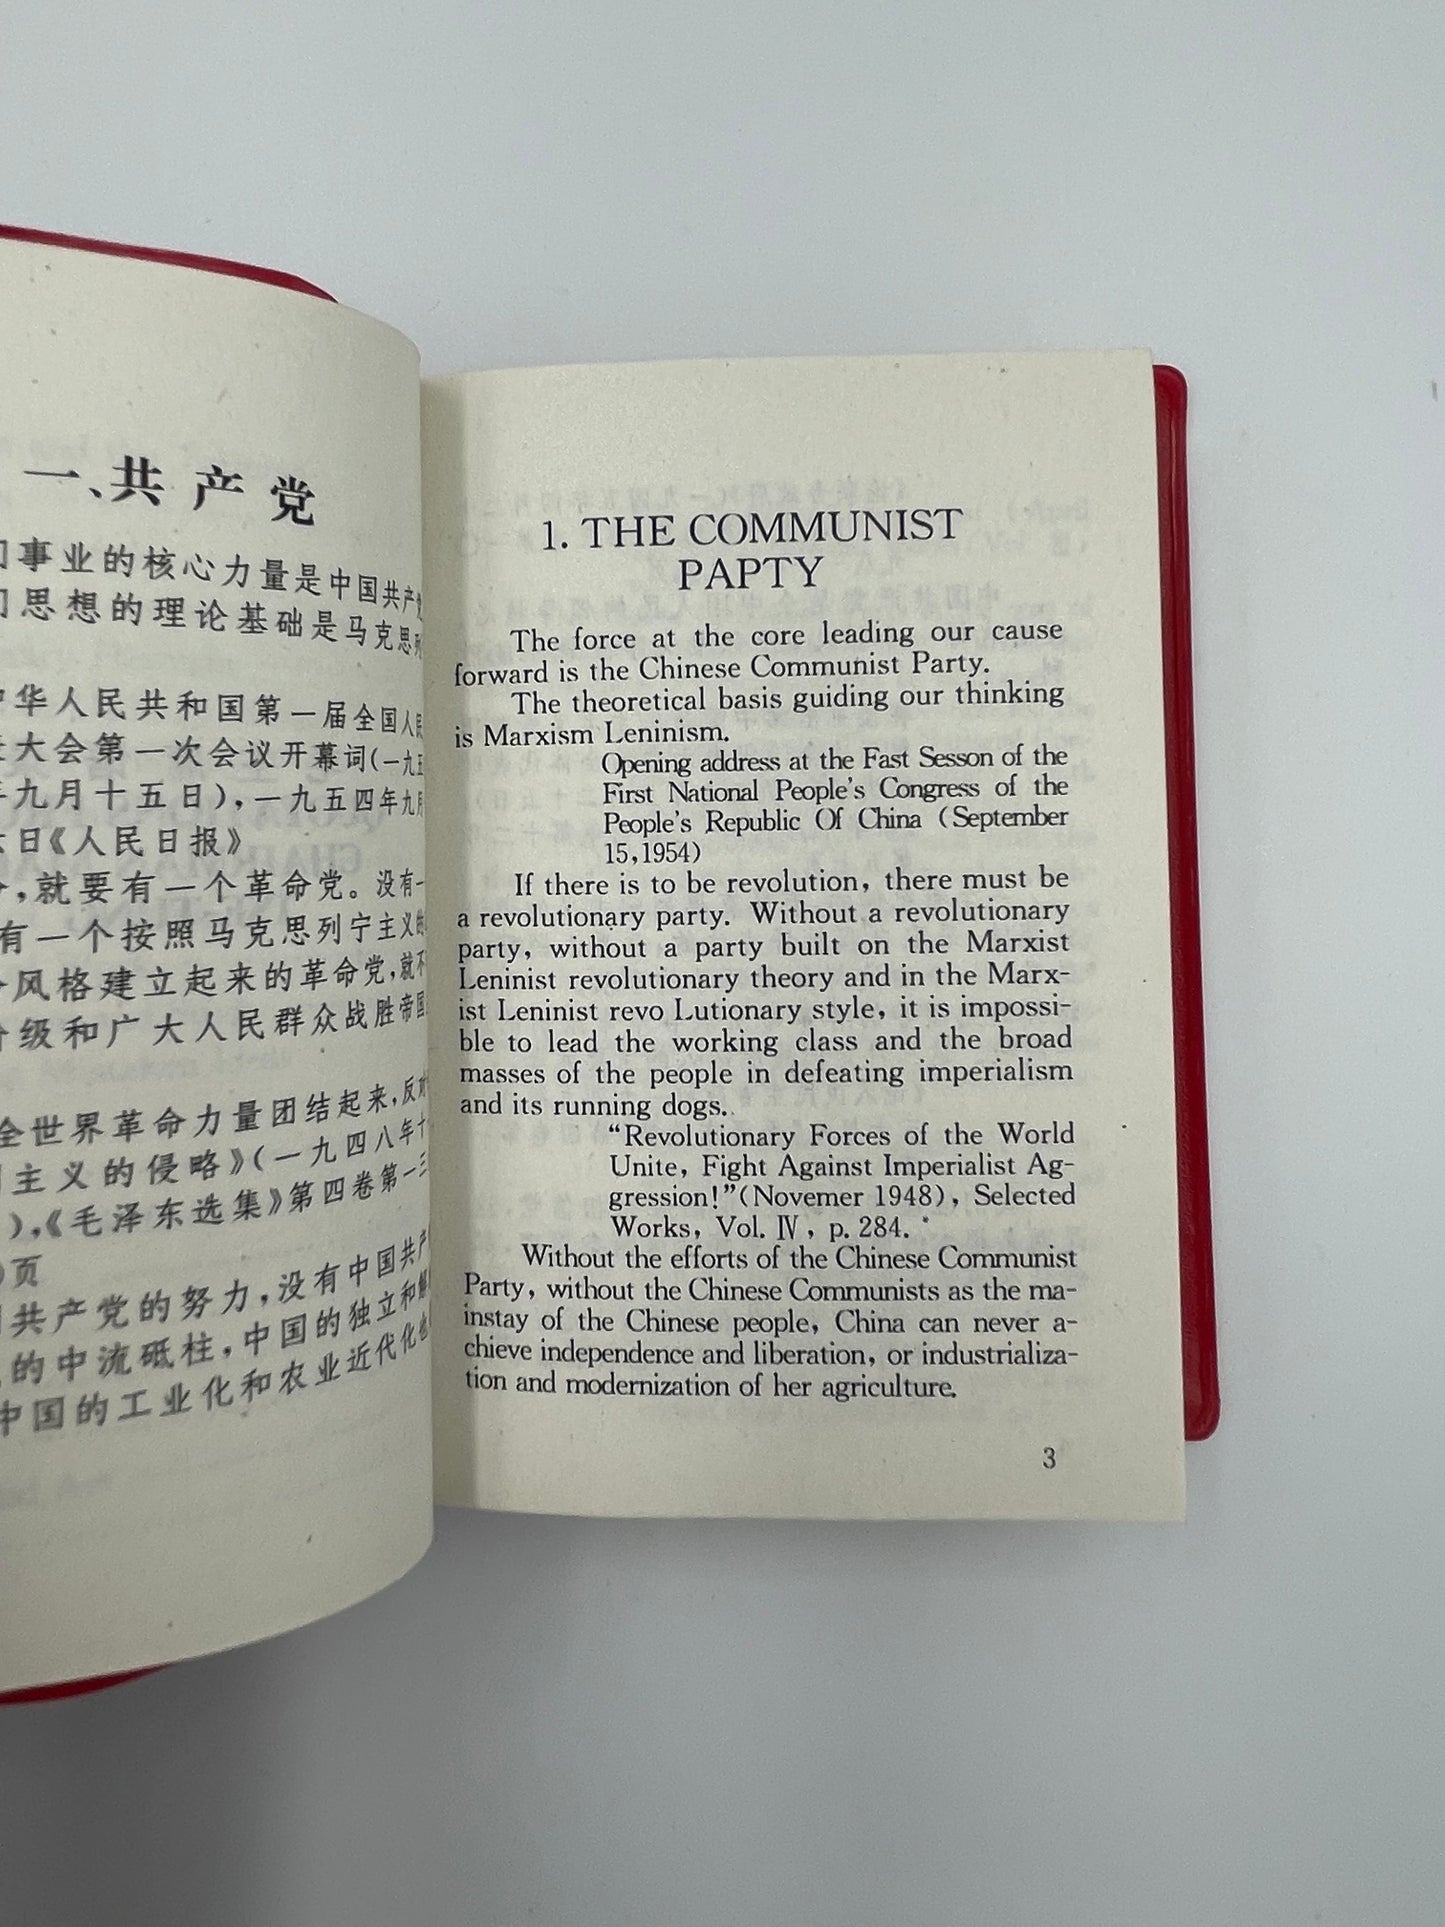 一、共产党
事业的核心力量是中国共产党
思想的理论基础是马克思列
华人民共和国第一届全国人民
大会第一次会议开幕词(一九五
九月十五日),一九五四年九月
日《人民日报》
,就要有一个革命党。没有一
有一个按照马克思列宁主义的
风格建立起来的革命党,就不
级和广大人民群众战胜帝国
全世界革命力量团结起来,反对
主义的侵略》(一九四八年十
),《毛泽东选集》第四卷第一三
页
共产党的努力,没有中国共产
的中流砥柱,中国的独立和解
中国的工业化和农业近代化也
1. THE COMMUNIST
PAPTY
The force at the core leading our cause
forward is the Chinese Communist Party.
The theoretical basis guiding our thinking
is Marxism Leninism.
Opening address at the Fast Sesson of the
First National People's Congress of the
People's Republic Of China (September
15,1954)
If there is to be revolution, there must be
a revolutionary party. Without a revolutionary
party, without a party built on the Marxist
Leninist revolutionary theory and in the Marx-
ist Leninist revo Lutionary style, it is impossi-
ble to lead the working class and the broad
masses of the people in defeating imperialism
and its running dogs.
“Revolutionary Forces of the World
Unite, Fight Against Imperialist Ag-
gression!”(Novemer 1948), Selected
Works, Vol. Ⅳ, p. 284.
Without the efforts of the Chinese Communist
Party, without the Chinese Communists as the ma-
instay of the Chinese people, China can never a-
chieve independence and liberation, or industrializa-
tion and modernization of her agriculture.
3